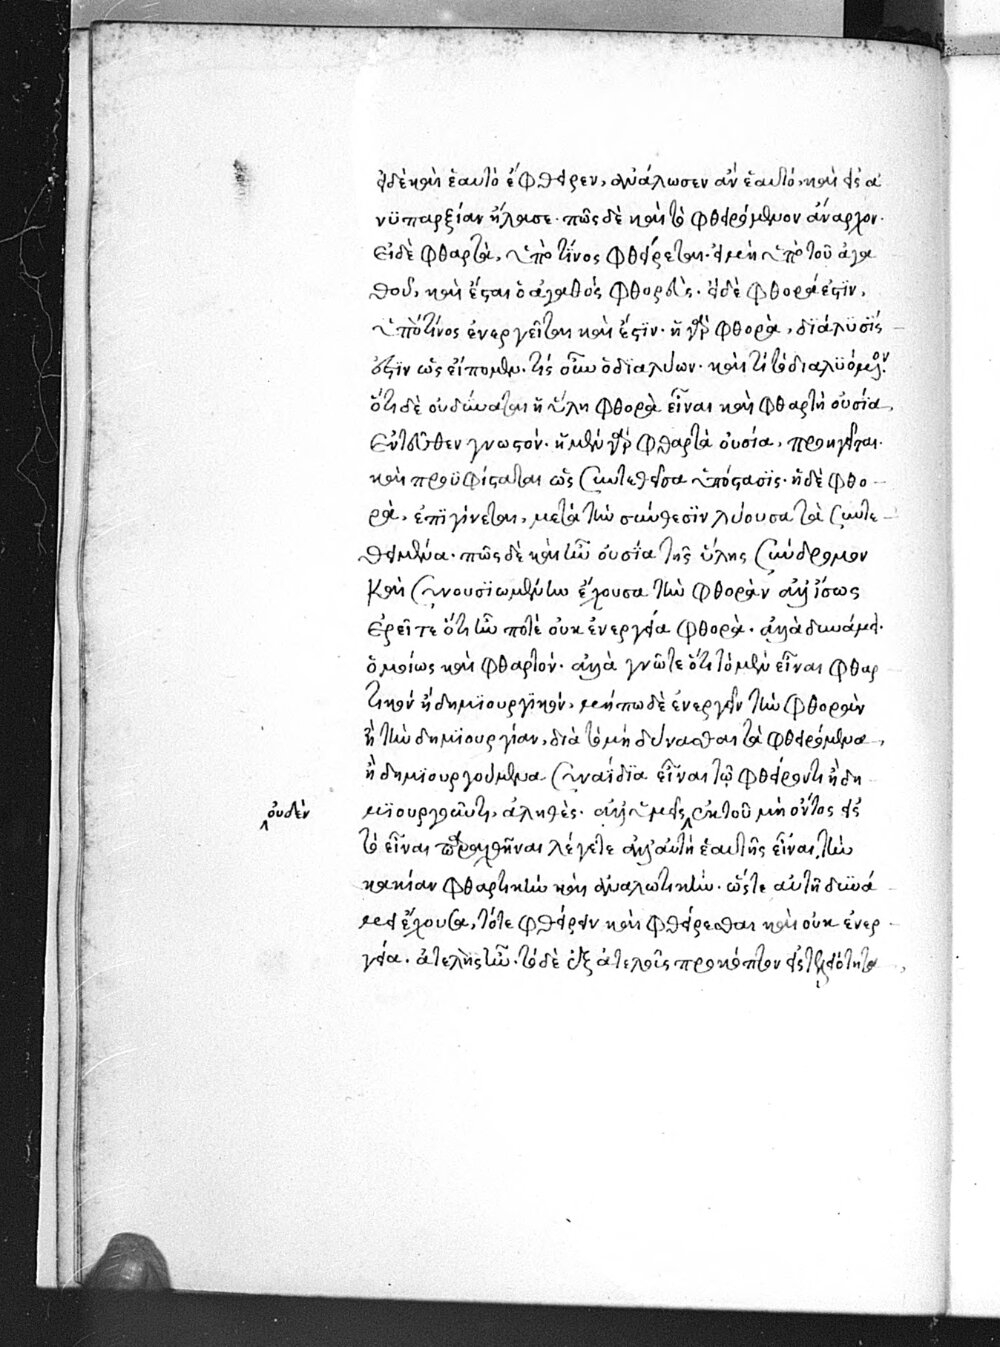 εἰ δὲ καὶ ἑαυτὸ ἔφθειρεν, ἀνάλωσεν ἂν ἑαυτό, καὶ εἰς ἀ
νϋπαρξίαν ἤλασε· πῶς δὲ καὶ τὸ φθειρόμενον ἄναρχον·
εἰ δὲ φθαρτὰ, ὑπὸ τίνος φθείρεται· εἰ μὴ ὑπὸ τοῦ ἀγα
θοῦ, καὶ ἔσται ὁ ἀγαθὸς φθορεὺς· εἰ δὲ φθορά ἐστϊν,
ὑπὸ τίνος ἐνεργεῖται καὶ ἔστϊν· ἡ γὰρ φθορὰ, διάλϋσίς
ἐστϊν ὡς εἴπομεν· τίς οὖν ὁ διαλύων· καὶ τί τὸ διαλϋόμενον·
ὅτι δὲ οὐ δύναται ἡ ὕλη φθορὰ εἶναι καὶ φθαρτὴ οὐσία,
ἐντεῦθεν γνωστόν· ἡ μὲν γὰρ φθαρτὰ οὐσία, προηγεῖται·
καὶ προϋφίσταται ὡς συντεθεῖσα ὑπόστασϊς· ἡ δὲ φθο
ρὰ, ἐπιγίνεται, μετὰ τὴν σύνθεσϊν λύουσα τὰ συντε
θειμένα· πῶς δὲ καὶ ἦν οὐσία τῆς ὕλης σύνδρομον
καὶ συνουσϊωμένην ἔχουσα τὴν φθορὰν ἀλλ' ἴσως
ἐρεῖτε ὅτι ἦν ποτὲ οὐκ ἐνεργεία φθορὰ· ἀλλὰ δυνάμει·
ὁμοίως καὶ φθαρτόν· ἀλλὰ γνῶτε ὅτι τὸ μὲν εἶναι φθαρ
τικὸν ἢ δημϊουργϊκὸν, μήπω δὲ ἐνεργεῖν τὴν φθορὰν
ἢ τὴν δημϊουργίαν, διὰ τὸ μὴ δύνασθαι τὰ φθειρόμενα,
ἢ δημϊουργούμενα συναΐδια εἶναι τῷ φθείροντι ἢ δη
μϊουργοῦντι, ἀληθὲς· ἀλλ' ὑμεῖς ἐκ τοῦ μὴ ὄντος εἰς
οὐδὲν
τὸ εἶναι παραχθῆναι λέγετε ἀλλ' αὐτὴ ἑαυτῆς εἶναι τὴν
κακίαν φθαρτικὴν καὶ ἀναλωτικὴν· ὥστε αὐτὴ δϋνά
μει ἔχουσα, τότε φθείρειν καὶ φθείρεσθαι καὶ οὐκ ἐνερ
γεία· ἀτελὴς ἦν· τὸ δὲ ἐξ ἀτελοῦς προκόπτον εἰς τελειότητα,